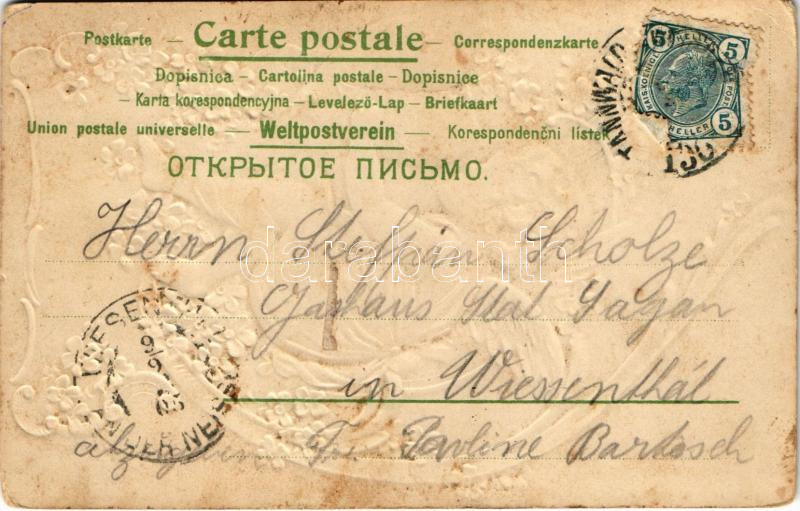 Postkarte — Carte postale — Correspondenzkarte
Dopisnica — Cartolina postale — Dopisnice
— Karta korespondencyjna — Levelező-Lap — Briefkaart
Union postale universelle — Weltpostverein — Korespondenční lístek
ОТКРЫТОЕ ПИСЬМО.
5 HELLER 5
5
HELLER
TANNWALD
Herrn Steffan Scholze
Gasthaus Stat Sagan
in Wiessenthal
Fr. Pavline Bartosch
WIESENTHAL
darabanth